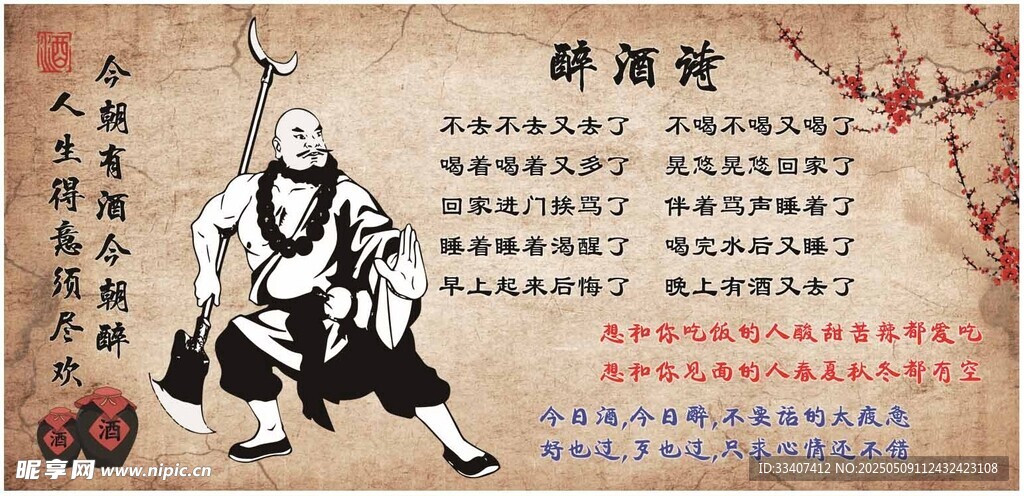 酒
今朝有酒今朝醉
人生得意须尽欢
醉酒诗
不去不去又去了 不喝不喝又喝了
喝着喝着又多了 晃悠晃悠回家了
回家进门挨骂了 伴着骂声睡着了
睡着睡着渴醒了 喝完水后又睡了
早上起来后悔了 晚上有酒又去了
想和你吃饭的人酸甜苦辣都爱吃
想和你见面的人春夏秋冬都有空
今日酒,今日醉,不要活的太疲惫
好也过,歹也过,只求心情还不错
酒
酒
昵享网 www.nipic.cn
ID:33407412 NO:20250509112432423108